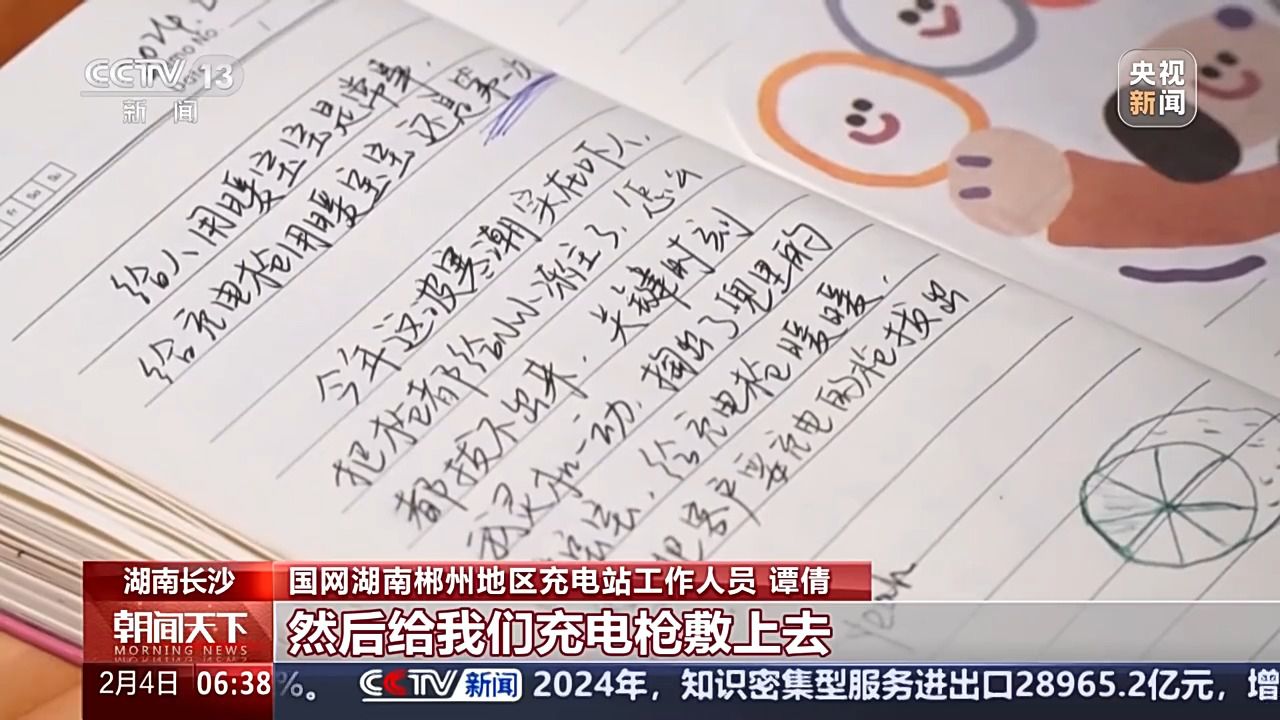 CCTV 13
新闻
央视
新闻
给人用暖宝宝是常事,
给充电枪用暖宝宝还是第一次
今年这波寒潮实在吓人,
把枪都给从小冻住了,怎么
都拔不出来,关键时刻
我灵机一动,掏出了兜里的
宝宝,给充电枪暖暖,
把客户要充电的枪拔出
Yeah
湖南长沙
国网湖南郴州地区充电站工作人员 谭倩
朝闻天下
MORNING NEWS
然后给我们充电枪敷上去
2月4日 06:38
%。 CCTV新闻 2024年，知识密集型服务进出口28965.2亿元，增